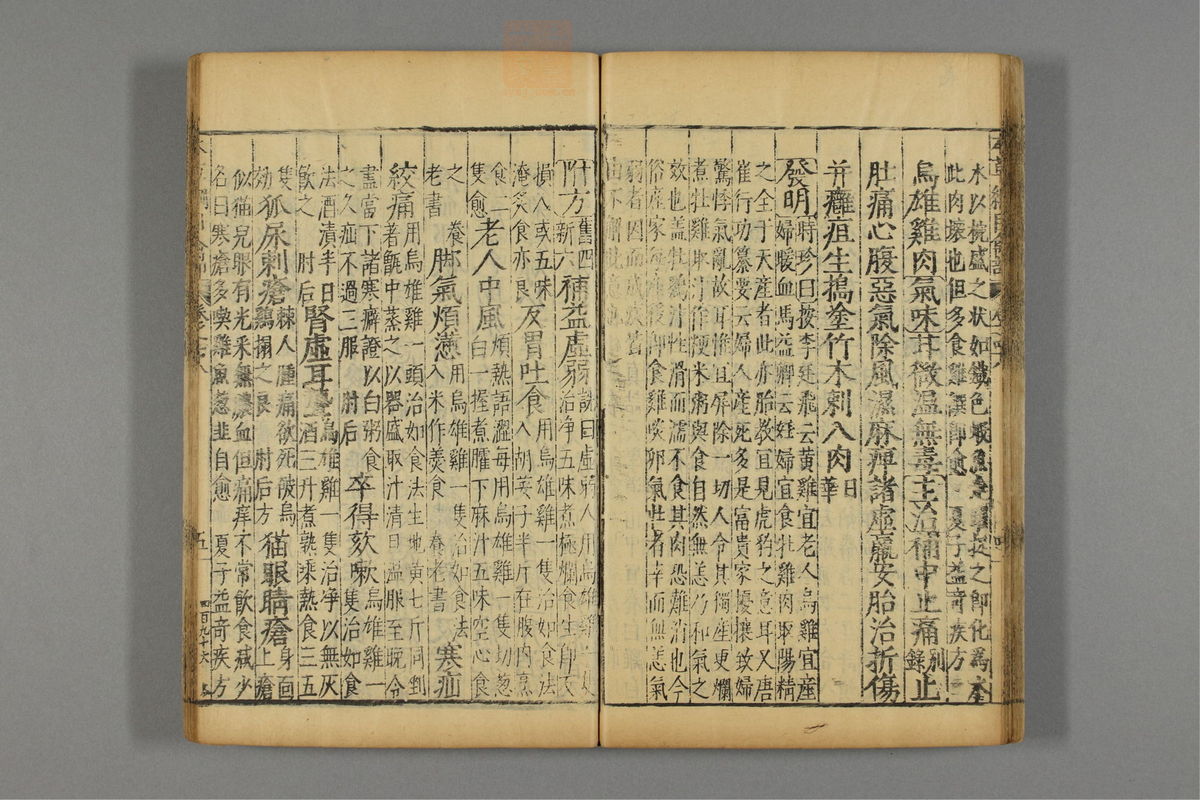 水以椀盛之状如鐵色蝦魚走躍捉之即化為水
此肉壊也但多食雞饌即愈 夏子益奇疾方
烏雄雞肉氣味甘微温無毒主治補中止痛別錄止
肚痛心腹惡氣除風濕麻痺諸虛羸安胎治折傷
并癰疽生搗塗竹木刺入肉日華
發明時珍曰按李廷飛云黄雞宜老人烏雞宜産
婦暖血馬益卿云妊婦宜食牡雞肉取陽精
之全于天産者此亦胎教宜見虎豹之意耳又唐
崔行功纂要云婦人産死多是富貴家擾攘致婦
驚悸氣亂故耳惟宜屏除一切人令其獨産更爛
煮牡雞取汁作粳米粥與食自然無恙乃和氣之
效也盖牡雞汁性滑而濡不食其肉恐難消也今
俗産家每産後即食雞啖卵氣壮者幸而無恙氣
弱者因而成疾皆
由不解此
附方舊四新六補益虛弱詵曰虛弱人用烏雄雞一隻
治净五味煮極爛食生即反
損人或五味淹炙食亦良反胃吐食用烏雄雞一隻治如食法
入胡荽子半斤在腹内烹
食二隻愈老人中風煩熱語澀每用烏雄雞一隻切葱
白一握煮臛下麻汁五味空心食
之 養老書脚氣煩懣用烏雄雞一隻治如食法
入米作羹食 養老書寒疝
絞痛用烏雄雞一頭治如食法生地黄七斤同剉
著甑中蒸之以器盛取汁清旦温服至晚令
盡當下諸寒癖證以白粥食
之久疝不過三服 肘后卒得欬嗽烏雄雞一
隻治如食
法酒漬半日
飲之 肘后腎虛耳聾烏雄雞一隻治净以無灰
酒三升煮熟乘熱食三五
隻効狐尿刺瘡棘人腫痛欲死破烏
雞搨之良 肘后方猫眼睛瘡身面
上瘡
似猫兒眼有光采無膿血但痛痒不常飲食减少
名曰寒瘡多喫雞魚葱韭自愈 夏子益奇疾方